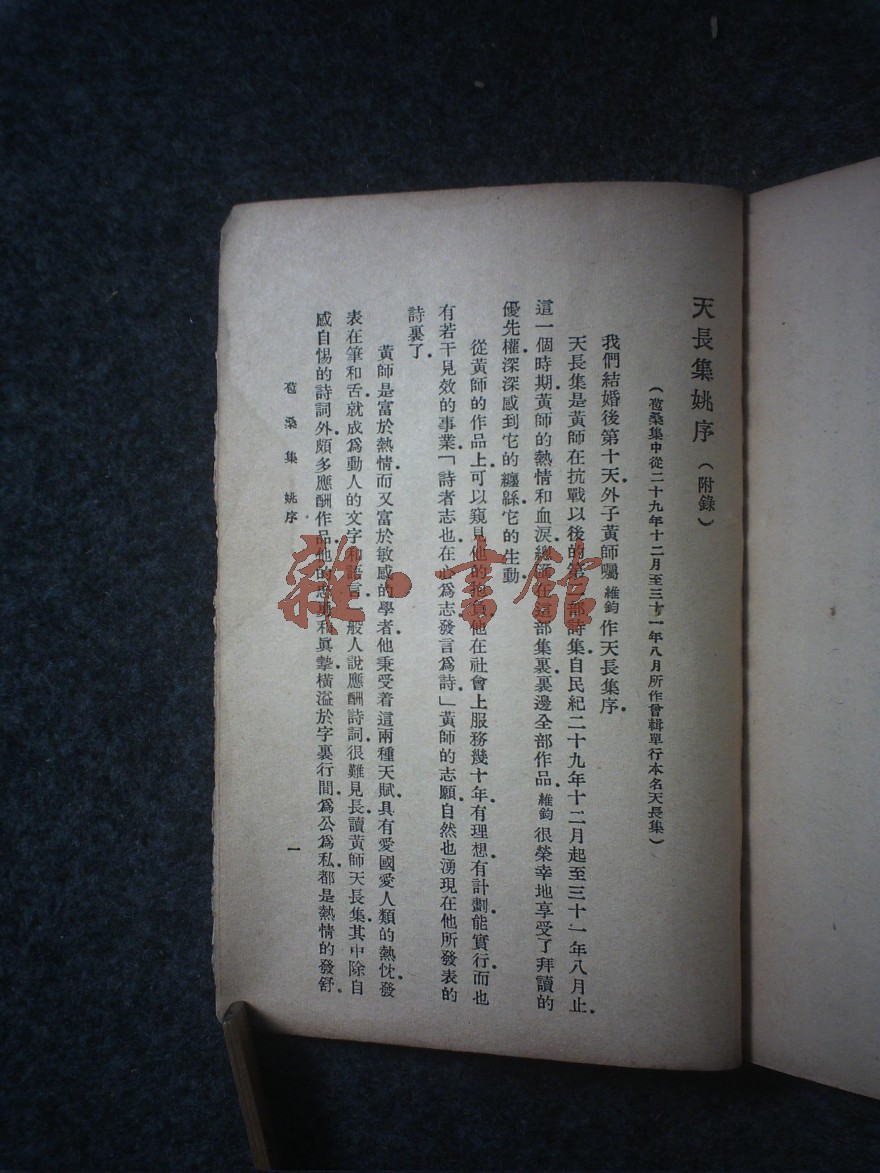 天長集姚序（附錄）
（苞桑集中從二十九年十二月至三十一年八月所作曾輯單行本名天長集）
我們結婚後第十天．外子黃師囑維鈞作天長集序．
天長集是黃師在抗戰以後的第二部詩集．自民紀二十九年十二月起至三十一年八月止．
這一個時期．黃師的熱情和血淚．總匯在這部集裏．裏邊全部作品．維鈞很榮幸地享受了拜讀的
優先權．深深感到它的纏緜．它的生動．
從黃師的作品上．可以窺見他的抱負．他在社會上服務幾十年．有理想．有計劃．能實行．而也
有若干見效的事業．「詩者志也．在心為志．發言為詩．」黃師的志願．自然也湧現在他所發表的
詩裏了．
黃師是富於熱情．而又富於敏感的學者．他秉受着這兩種天賦．具有愛國愛人類的熱忱．發
表在筆和舌．就成爲動人的文字和語言．一般人說應酬詩詞．很難見長．讀黃師天長集．其中除自
感自惕的詩詞外．頗多應酬作品．他的 和眞摯．橫溢於字裏行間．爲公爲私．都是熱情的發舒．
苞桑集 姚序
一
雜·書館